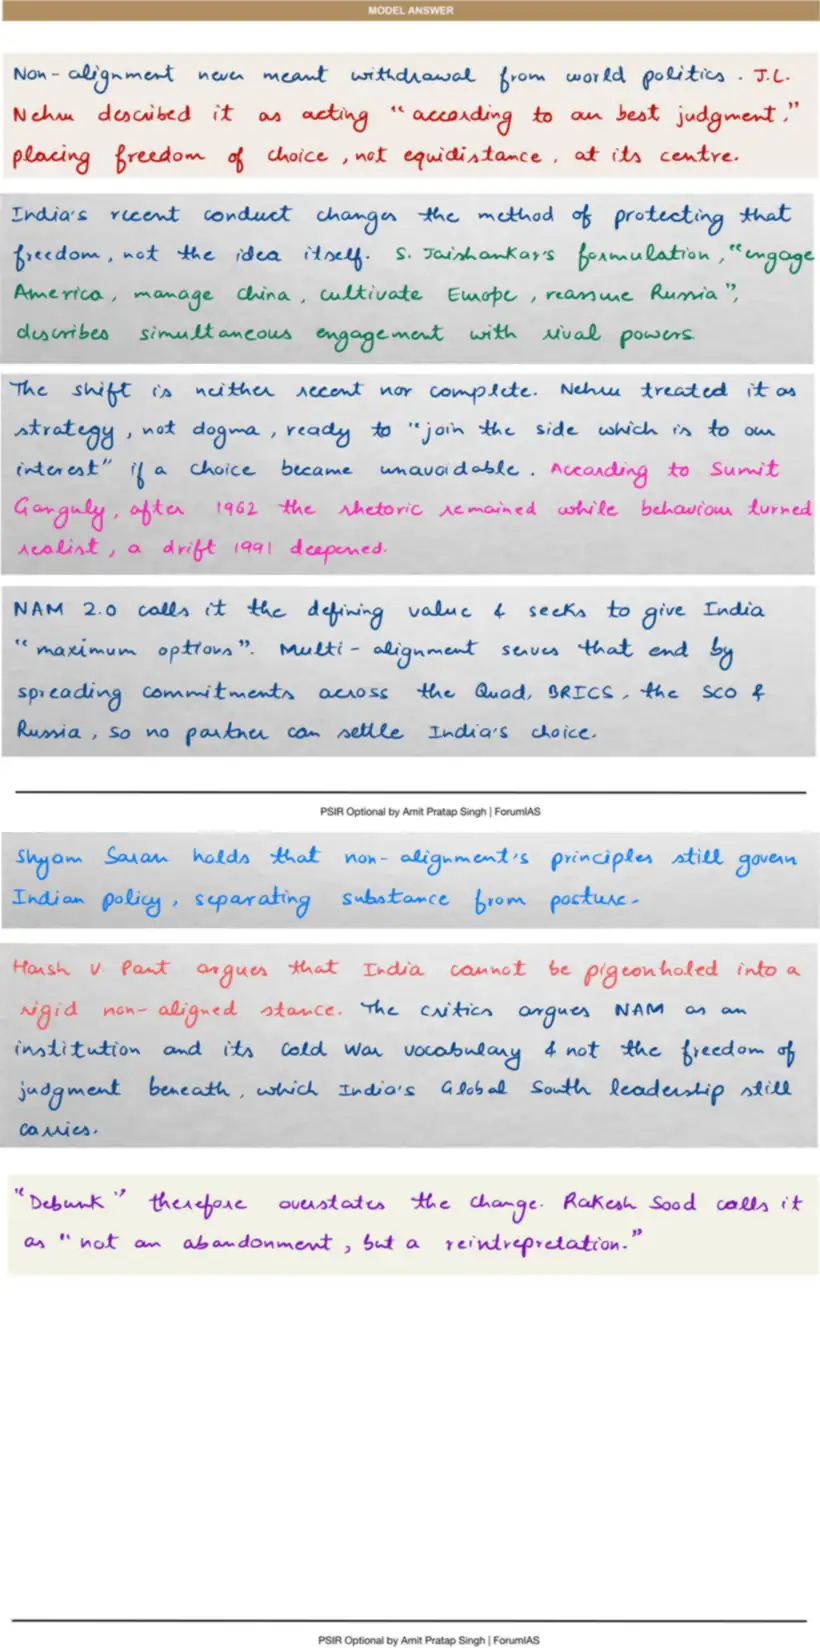 MODEL ANSWER
Non-alignment never meant withdrawal from world politics. J.L.
Nehru described it as acting "according to our best judgment,"
placing freedom of choice, not equidistance, at its centre.
India's recent conduct changes the method of protecting that
freedom, not the idea itself. S. Jaishankar's formulation, "engage
America, manage China, cultivate Europe, reassure Russia",
describes simultaneous engagement with rival powers
The shift is neither recent nor complete. Nehru treated it as
strategy, not dogma, ready to "join the side which is to our
interest" if a choice became unavoidable. According to Sumit
Ganguly, after 1962 the rhetoric remained while behaviour turned
realist, a drift 1991 deepened.
NAM 2.0 calls it the defining value & seeks to give India
"maximum options". Multi-alignment serves that end by
spreading commitments across the Quad, BRICS, the SCO &
Russia, so no partner can settle India's choice.
PSIR Optional by Amit Pratap Singh | ForumIAS
Shyam Saran holds that non-alignment's principles still govern
Indian policy, separating substance from posture.
Harsh V. Pant argues that India cannot be pigeonholed into a
rigid non-aligned stance. The critics argues NAM as an
institution and its Cold War vocabulary & not the freedom of
judgment beneath, which India's Global South leadership still
carries.
"Debunk" therefore overstates the change. Rakesh Sood calls it
as "not an abandonment, but a reintrepretation."
PSIR Optional by Amit Pratap Singh | ForumIAS